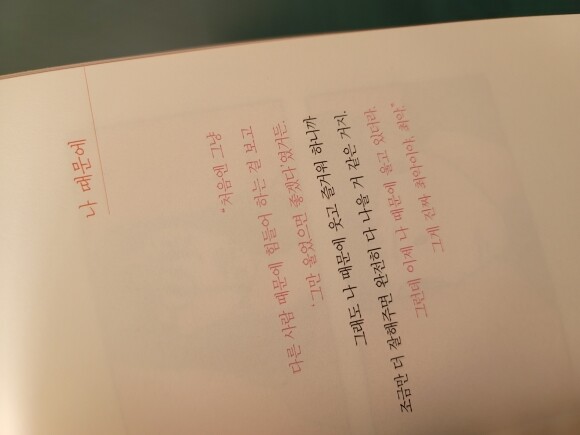 나 때문에
"처음엔 그냥
다른 사람 때문에 힘들어 하는 걸 보고
'그만 울었으면 좋겠다'였거든.
그래도 나 때문에 웃고 즐거워 하니까
조금만 더 잘해주면 완전히 다 나을 거 같은 거지.
그런데 이제 나 때문에 울고 있더라.
그게 진짜 최악이야. 최악."